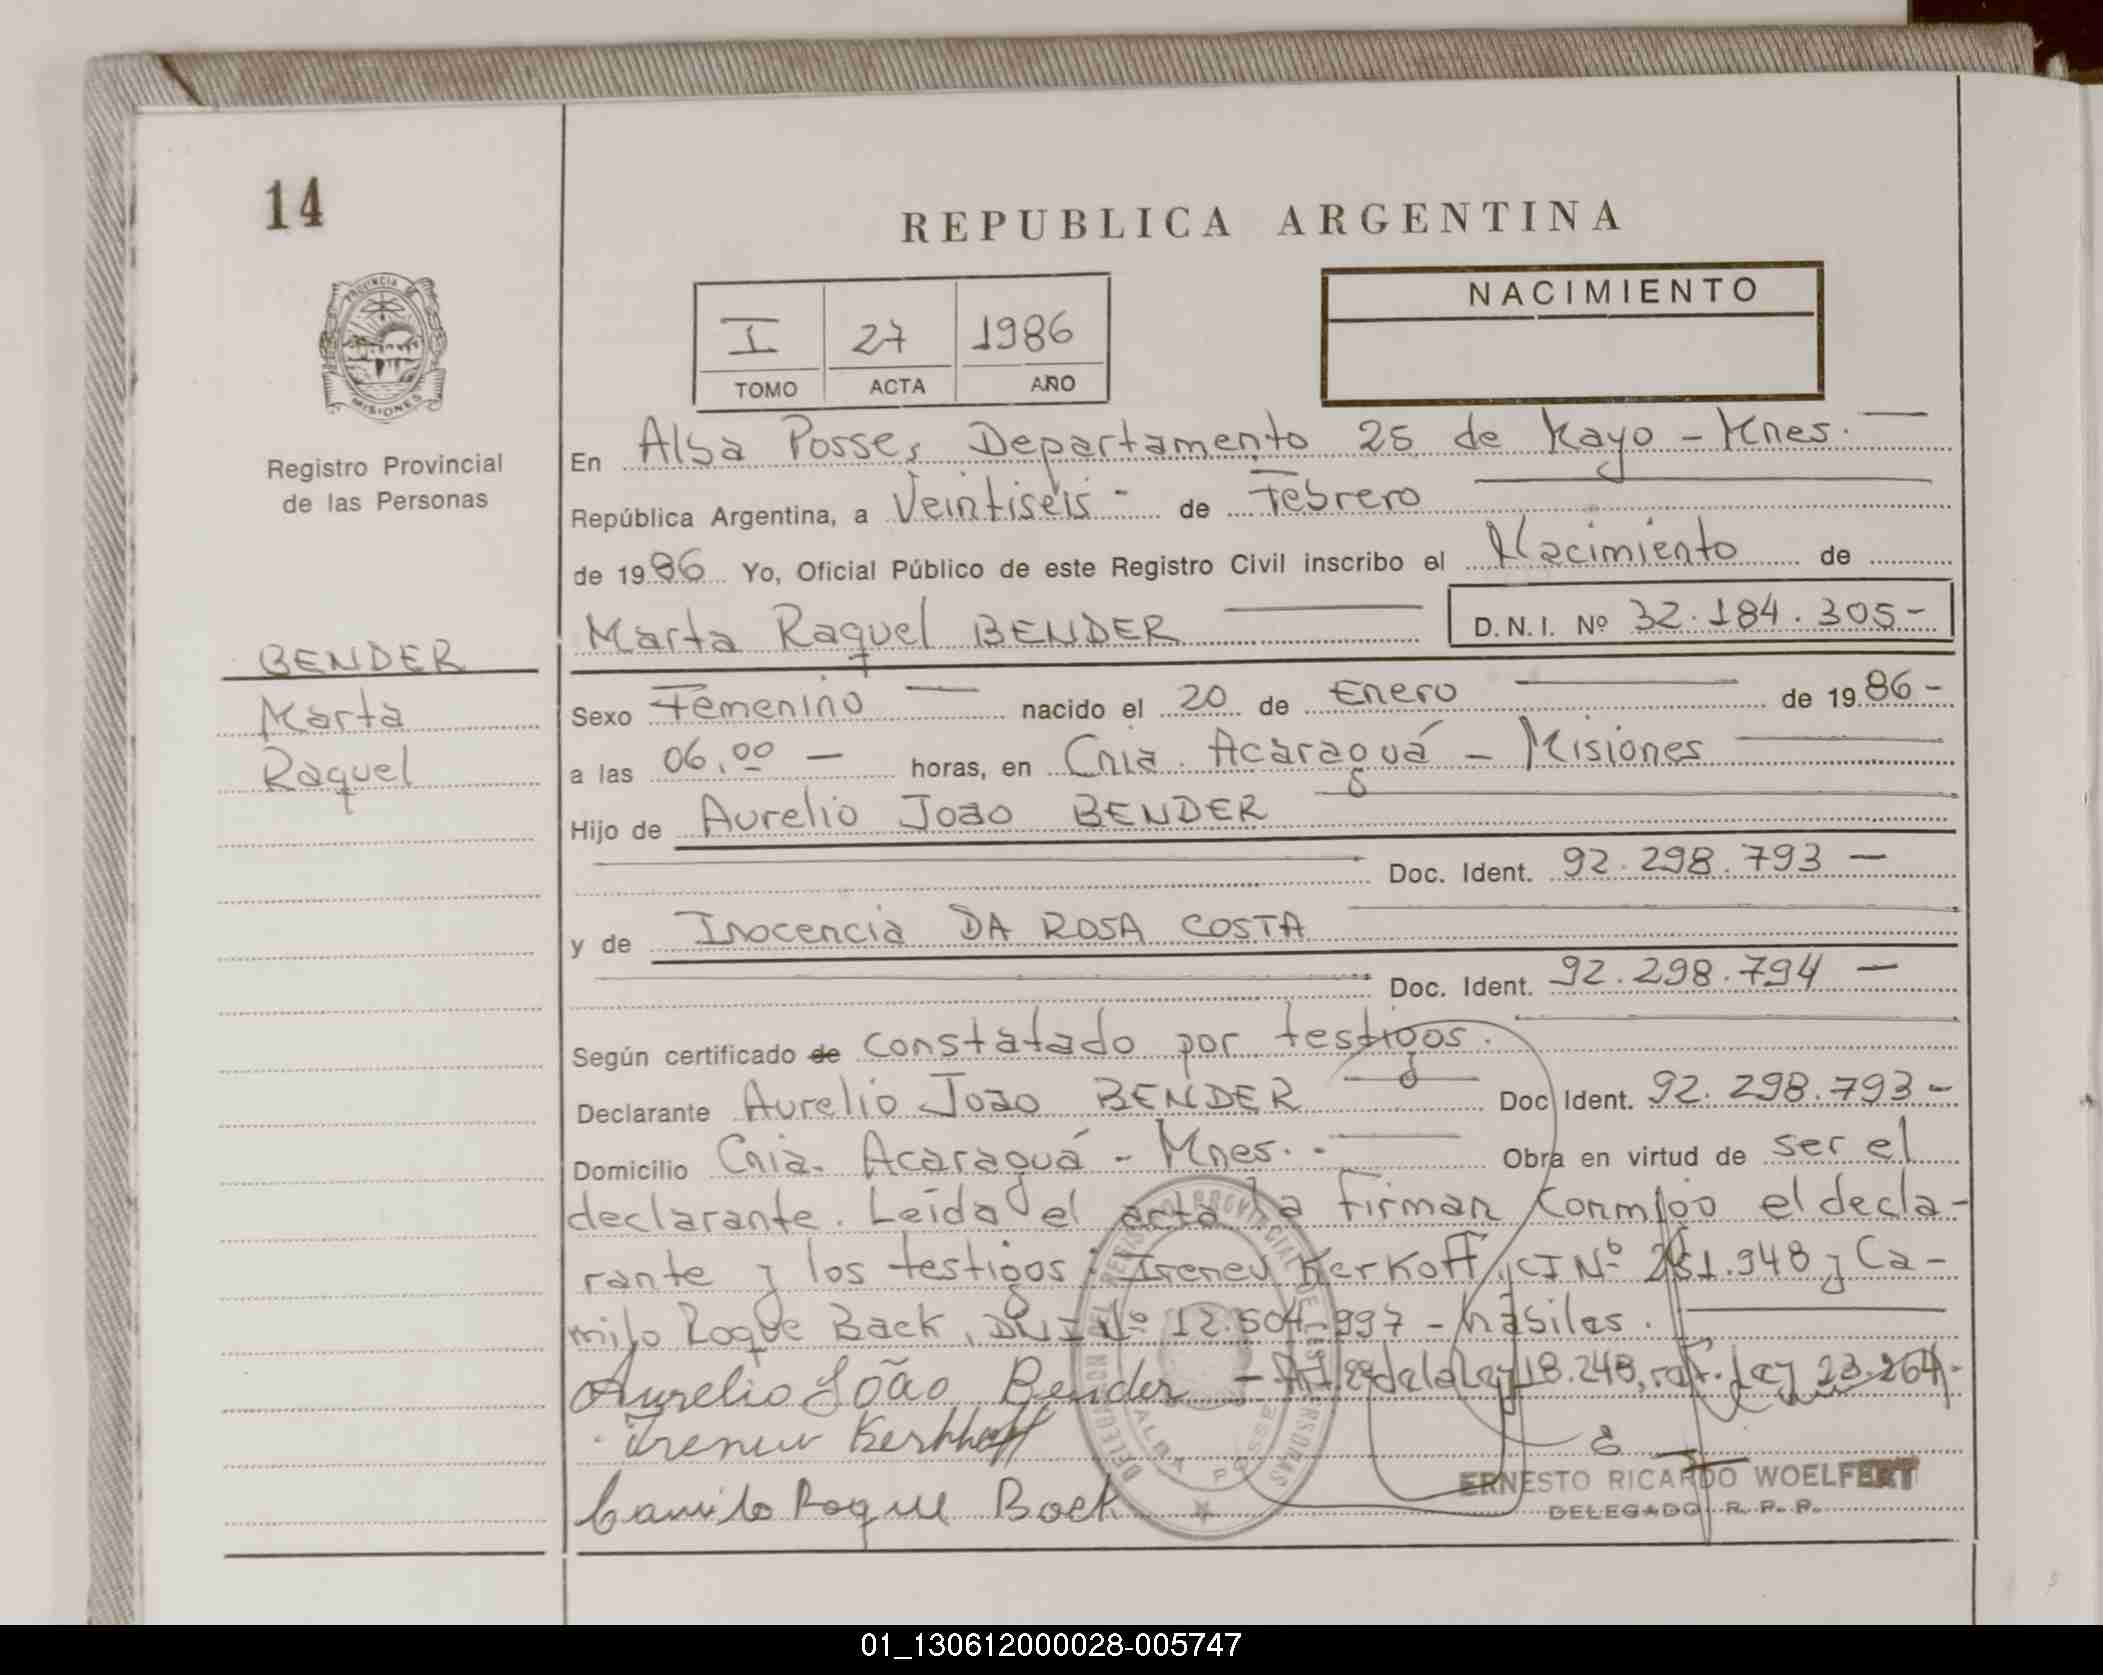 14
REPUBLICA ARGENTINA
PROVINCIA DE
MISIONES
Registro Provincial
de las Personas
I 27 1986
TOMO ACTA AÑO
NACIMIENTO
En Alba Posse, Departamento 25 de Mayo - Mnes.
República Argentina, a Veintiséis - de Febrero
de 1986 Yo, Oficial Público de este Registro Civil inscribo el Nacimiento de
Marta Raquel BENDER D.N.I. Nº 32.184.305-
BENDER
Marta
Raquel
Sexo Femenino nacido el 20 de Enero de 1986-
a las 06,00 - horas, en Cnia. Acaraguá - Misiones
Hijo de Aurelio Joao BENDER
Doc. Ident. 92.298.793 -
y de Inocencia DA ROSA COSTA
Doc. Ident. 92.298.794 -
Según certificado de constatado por testigos.
Declarante Aurelio Joao BENDER Doc. Ident. 92.298.793-
Domicilio Cnia. Acaraguá - Mnes. - Obra en virtud de ser el
declarante. Leída el acta la firman conmigo el decla-
rante y los testigos: Ireneu Kerkoff, CI Nº 251.948 y Ca-
milo Roque Back, DNI Nº 12.504.997 - hábiles.
Aurelio João Bender - de la Ley 18.248, ref. Ley 23.264-
Ireneu Kerkhoff
Camilo Roque Back
DELEGACION DEL REGISTRO PROVINCIAL DE LAS PERSONAS
ALBA POSSE
ERNESTO RICARDO WOELFERT
DELEGADO R. P. P.
01_130612000028-005747